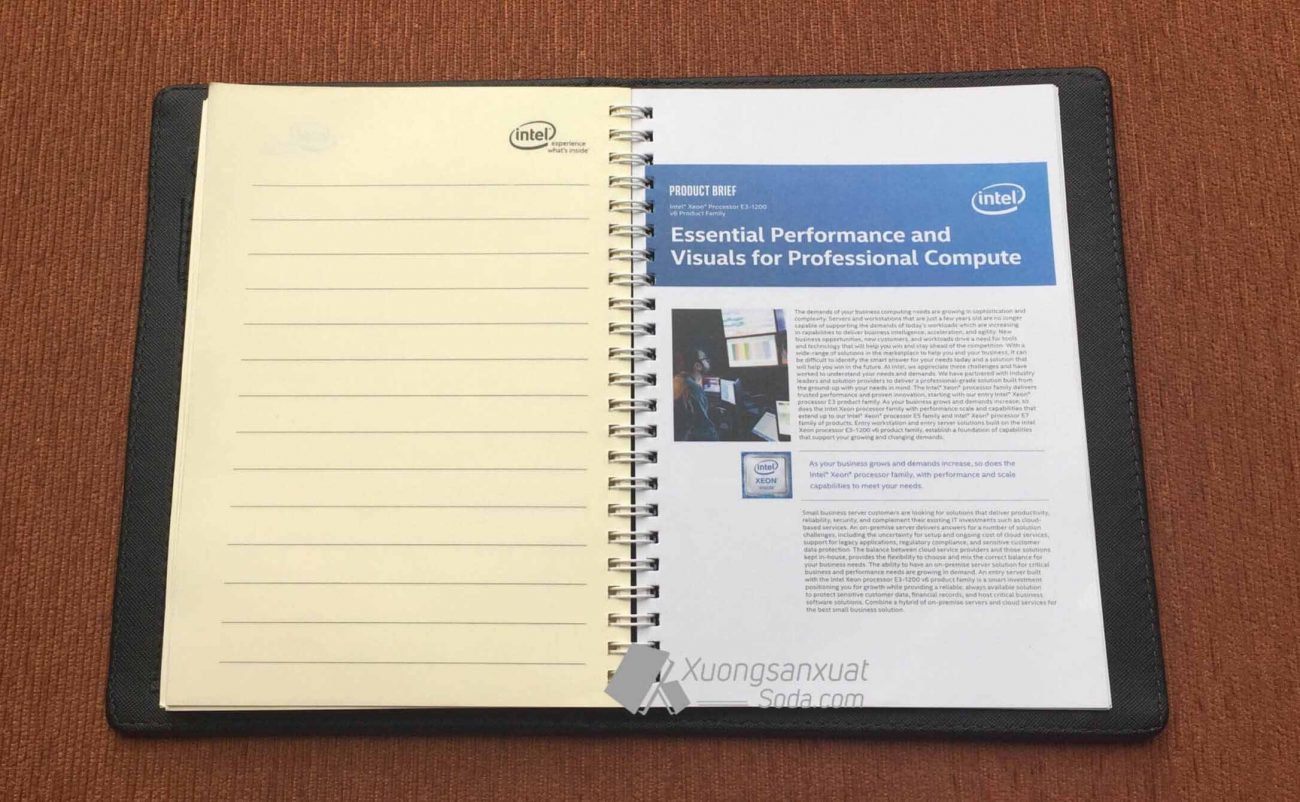 intel
experience
what's inside™
PRODUCT BRIEF
Intel® Xeon® Processor E3-1200
v6 Product Family
intel
Essential Performance and
Visuals for Professional Compute
The demands of your business computing needs are growing in sophistication and
complexity. Servers and workstations that are just a few years old are no longer
capable of supporting the demands of today's workloads which are increasing
in capabilities to deliver business intelligence, acceleration, and agility. New
business opportunities, new customers, and workloads drive a need for tools
and technology that will help you win and stay ahead of the competition. With a
wide-range of solutions in the marketplace to help you and your business, it can
be difficult to identify the smart answer for your needs today and a solution that
will help you win in the future. At Intel, we appreciate these challenges and have
worked to understand your needs and demands. We have partnered with industry
leaders and solution providers to deliver a professional-grade solution built from
the ground-up with your needs in mind. The Intel® Xeon® processor family delivers
trusted performance and proven innovation, starting with our entry Intel® Xeon®
processor E3 product family. As your business grows and demands increase, so
does the Intel Xeon processor family with performance scale and capabilities that
extend up to our Intel® Xeon® processor E5 family and Intel® Xeon® processor E7
family of products. Entry workstation and entry server solutions built on the Intel
Xeon processor E3-1200 v6 product family, establish a foundation of capabilities
that support your growing and changing demands.
intel
XEON®
inside™
As your business grows and demands increase, so does the
Intel® Xeon® processor family, with performance and scale
capabilities to meet your needs.
Small business server customers are looking for solutions that deliver productivity,
reliability, security, and complement their existing IT investments such as cloud-
based services. An on-premise server delivers answers for a number of solution
challenges, including the uncertainty for setup and ongoing cost of cloud services,
support for legacy applications, regulatory compliance, and sensitive customer
data protection. The balance between cloud service providers and those solutions
kept in-house, provides the flexibility to choose and mix the correct balance for
your business needs. The ability to have an on-premise server solution for critical
business and performance needs are growing in demand. An entry server built
with the Intel Xeon processor E3-1200 v6 product family is a smart investment
positioning you for growth while providing a reliable, always available solution
to protect sensitive customer data, financial records, and host critical business
software solutions. Combine a hybrid of on-premise servers and cloud services for
the best small business solution.
Xuongsanxuat
Soda.com